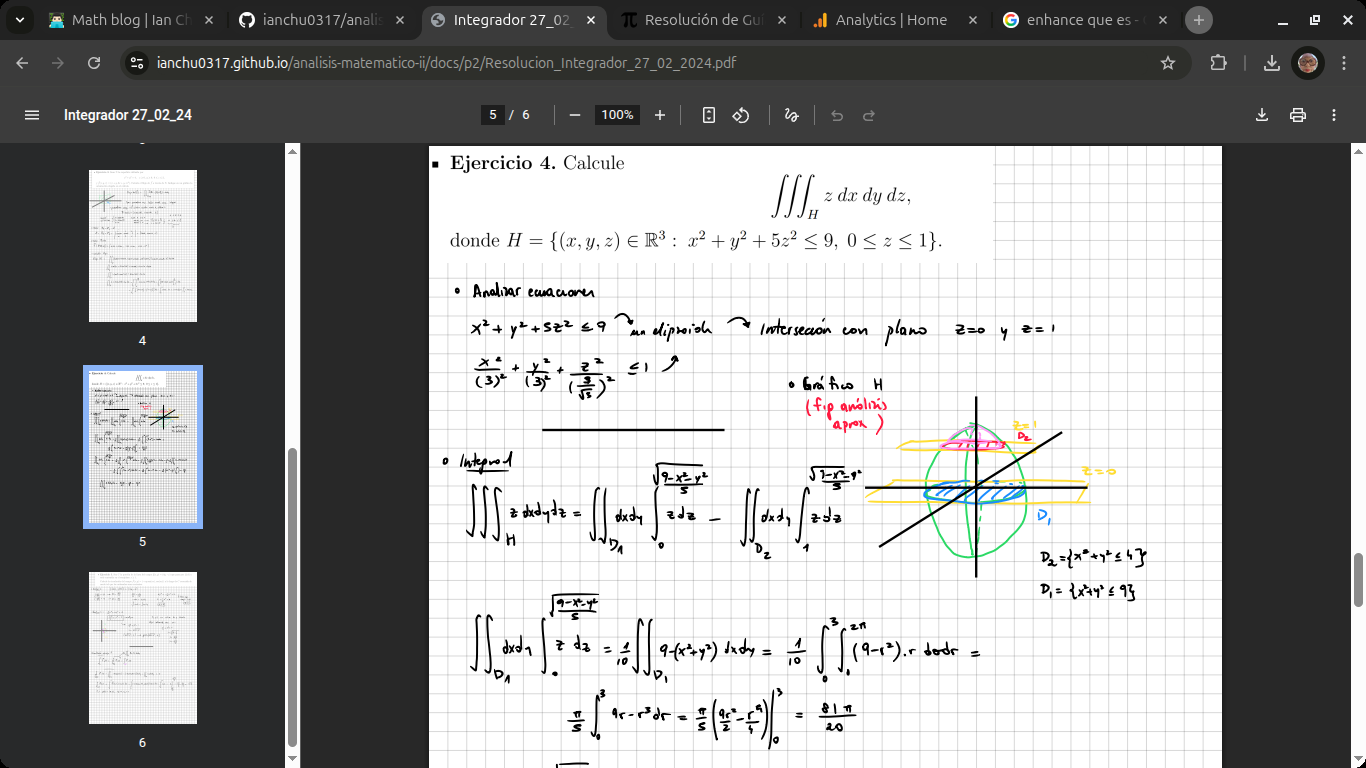 Math blog | Ian Ch
ianchu0317/analis
Integrador 27_02
Resolución de Guí
Analytics | Home
enhance que es -
ianchu0317.github.io/analisis-matematico-ii/docs/p2/Resolucion_Integrador_27_02_2024.pdf
Integrador 27_02_24
5 / 6
100%
4
5
6
Ejercicio 4. Calcule
∭_H z dx dy dz,
donde H = {(x, y, z) ∈ ℝ³ : x² + y² + 5z² ≤ 9, 0 ≤ z ≤ 1}.
• Analizar ecuaciones
x² + y² + 5z² ≤ 9 un elipsoide Intersección con plano z=0 y z=1
x²/(3)² + y²/(3)² + z²/(3/√5)² ≤ 1
• Gráfico H
(fig análisis
aprox)
z=1
D₂
z=0
D₁
D₂ = {x² + y² ≤ 4}
D₁ = {x² + y² ≤ 9}
• Integral
∭_H z dxdydz = ∬_D₁ dxdy ∫₀^√((9-x²-y²)/5) z dz − ∬_D₂ dxdy ∫₁^√((9-x²-y²)/5) z dz
∬_D₁ dxdy ∫₀^√((9-x²-y²)/5) z dz = 1/10 ∬_D₁ 9-(x²+y²) dxdy = 1/10 ∫₀³ ∫₀^2π (9-r²).r dθdr =
π/5 ∫₀³ 9r - r³ dr = π/5 (9r²/2 - r⁴/4)|₀³ = 81π/20